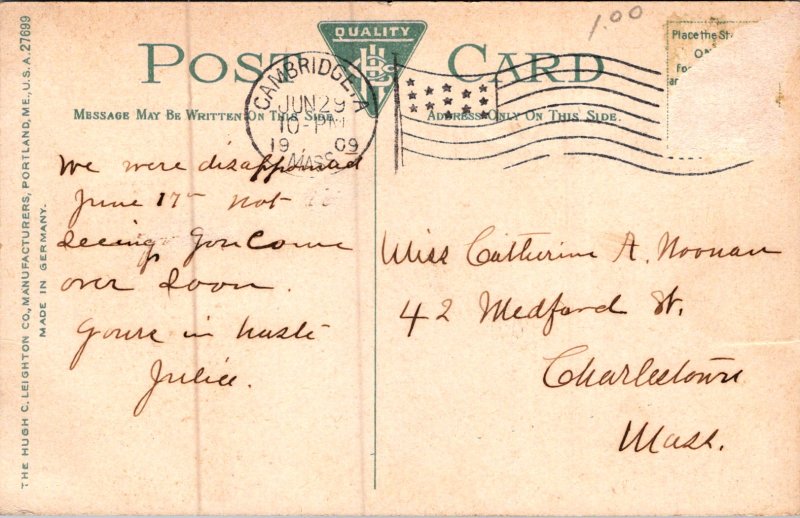 THE HUGH C. LEIGHTON CO., MANUFACTURERS, PORTLAND, ME., U.S.A. 27699
MADE IN GERMANY.
QUALITY
POST CARD
1.00
Place the St
ON
Fo
MESSAGE MAY BE WRITTEN ON THIS SIDE.
ADDRESS ONLY ON THIS SIDE.
CAMBRIDGE-A
JUN 29
10-PM
19 09
MASS.
We were disappointed
June 17th not
seeing you Come
over soon.
Yours in haste
Julia.
Miss Catherine A. Noonan
42 Medford St.
Charlestown
Mass.